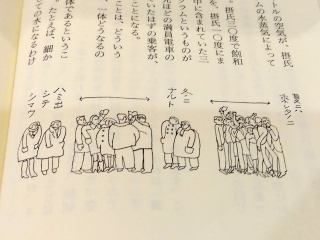 トルの空気が、摂氏
ムの水蒸気によって
摂氏三〇度で飽和
を、摂氏一〇度に
中に含まれていた三
グラムというものが
ほどの満員電車の
いたはずの乗客が、
ことになる。
ことは、どういう
一体どうなるの
体であるというこ
たとえば、細か
ての水になるわけ
夏ニ
乗レタノニ
冬ニ
ナルト
ハミ出
シテ
シマウ